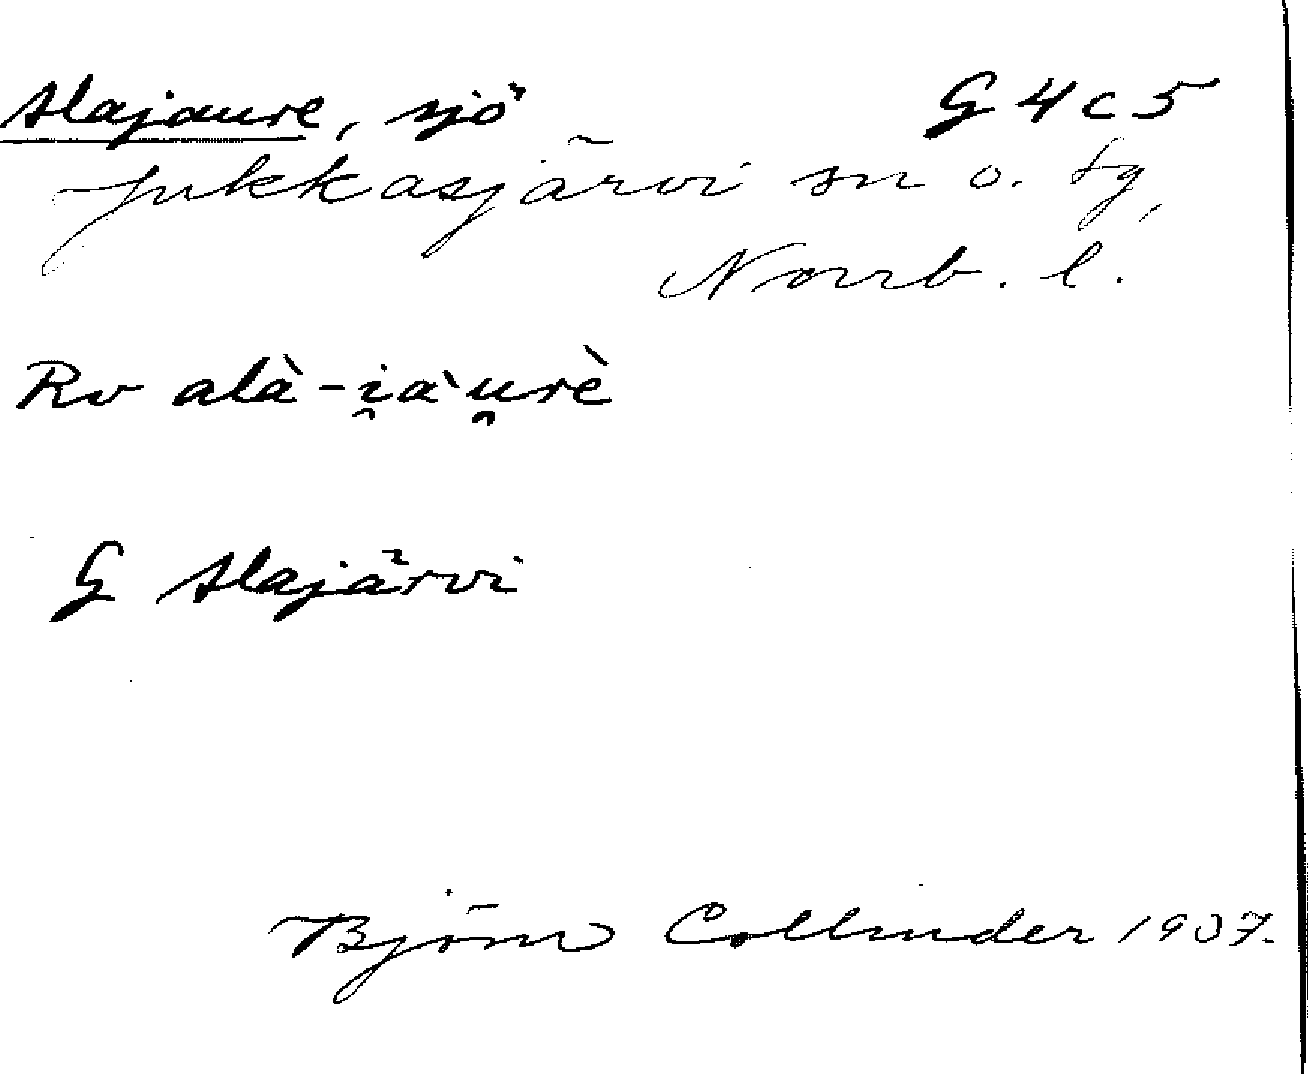 Alajaure, sjö G 4 c 5
Jukkasjärvi sn o. tg,
Norrb. l.
Rv alà-i̯a`u̯rè
G Alajärvi
Björn Collinder 1937.